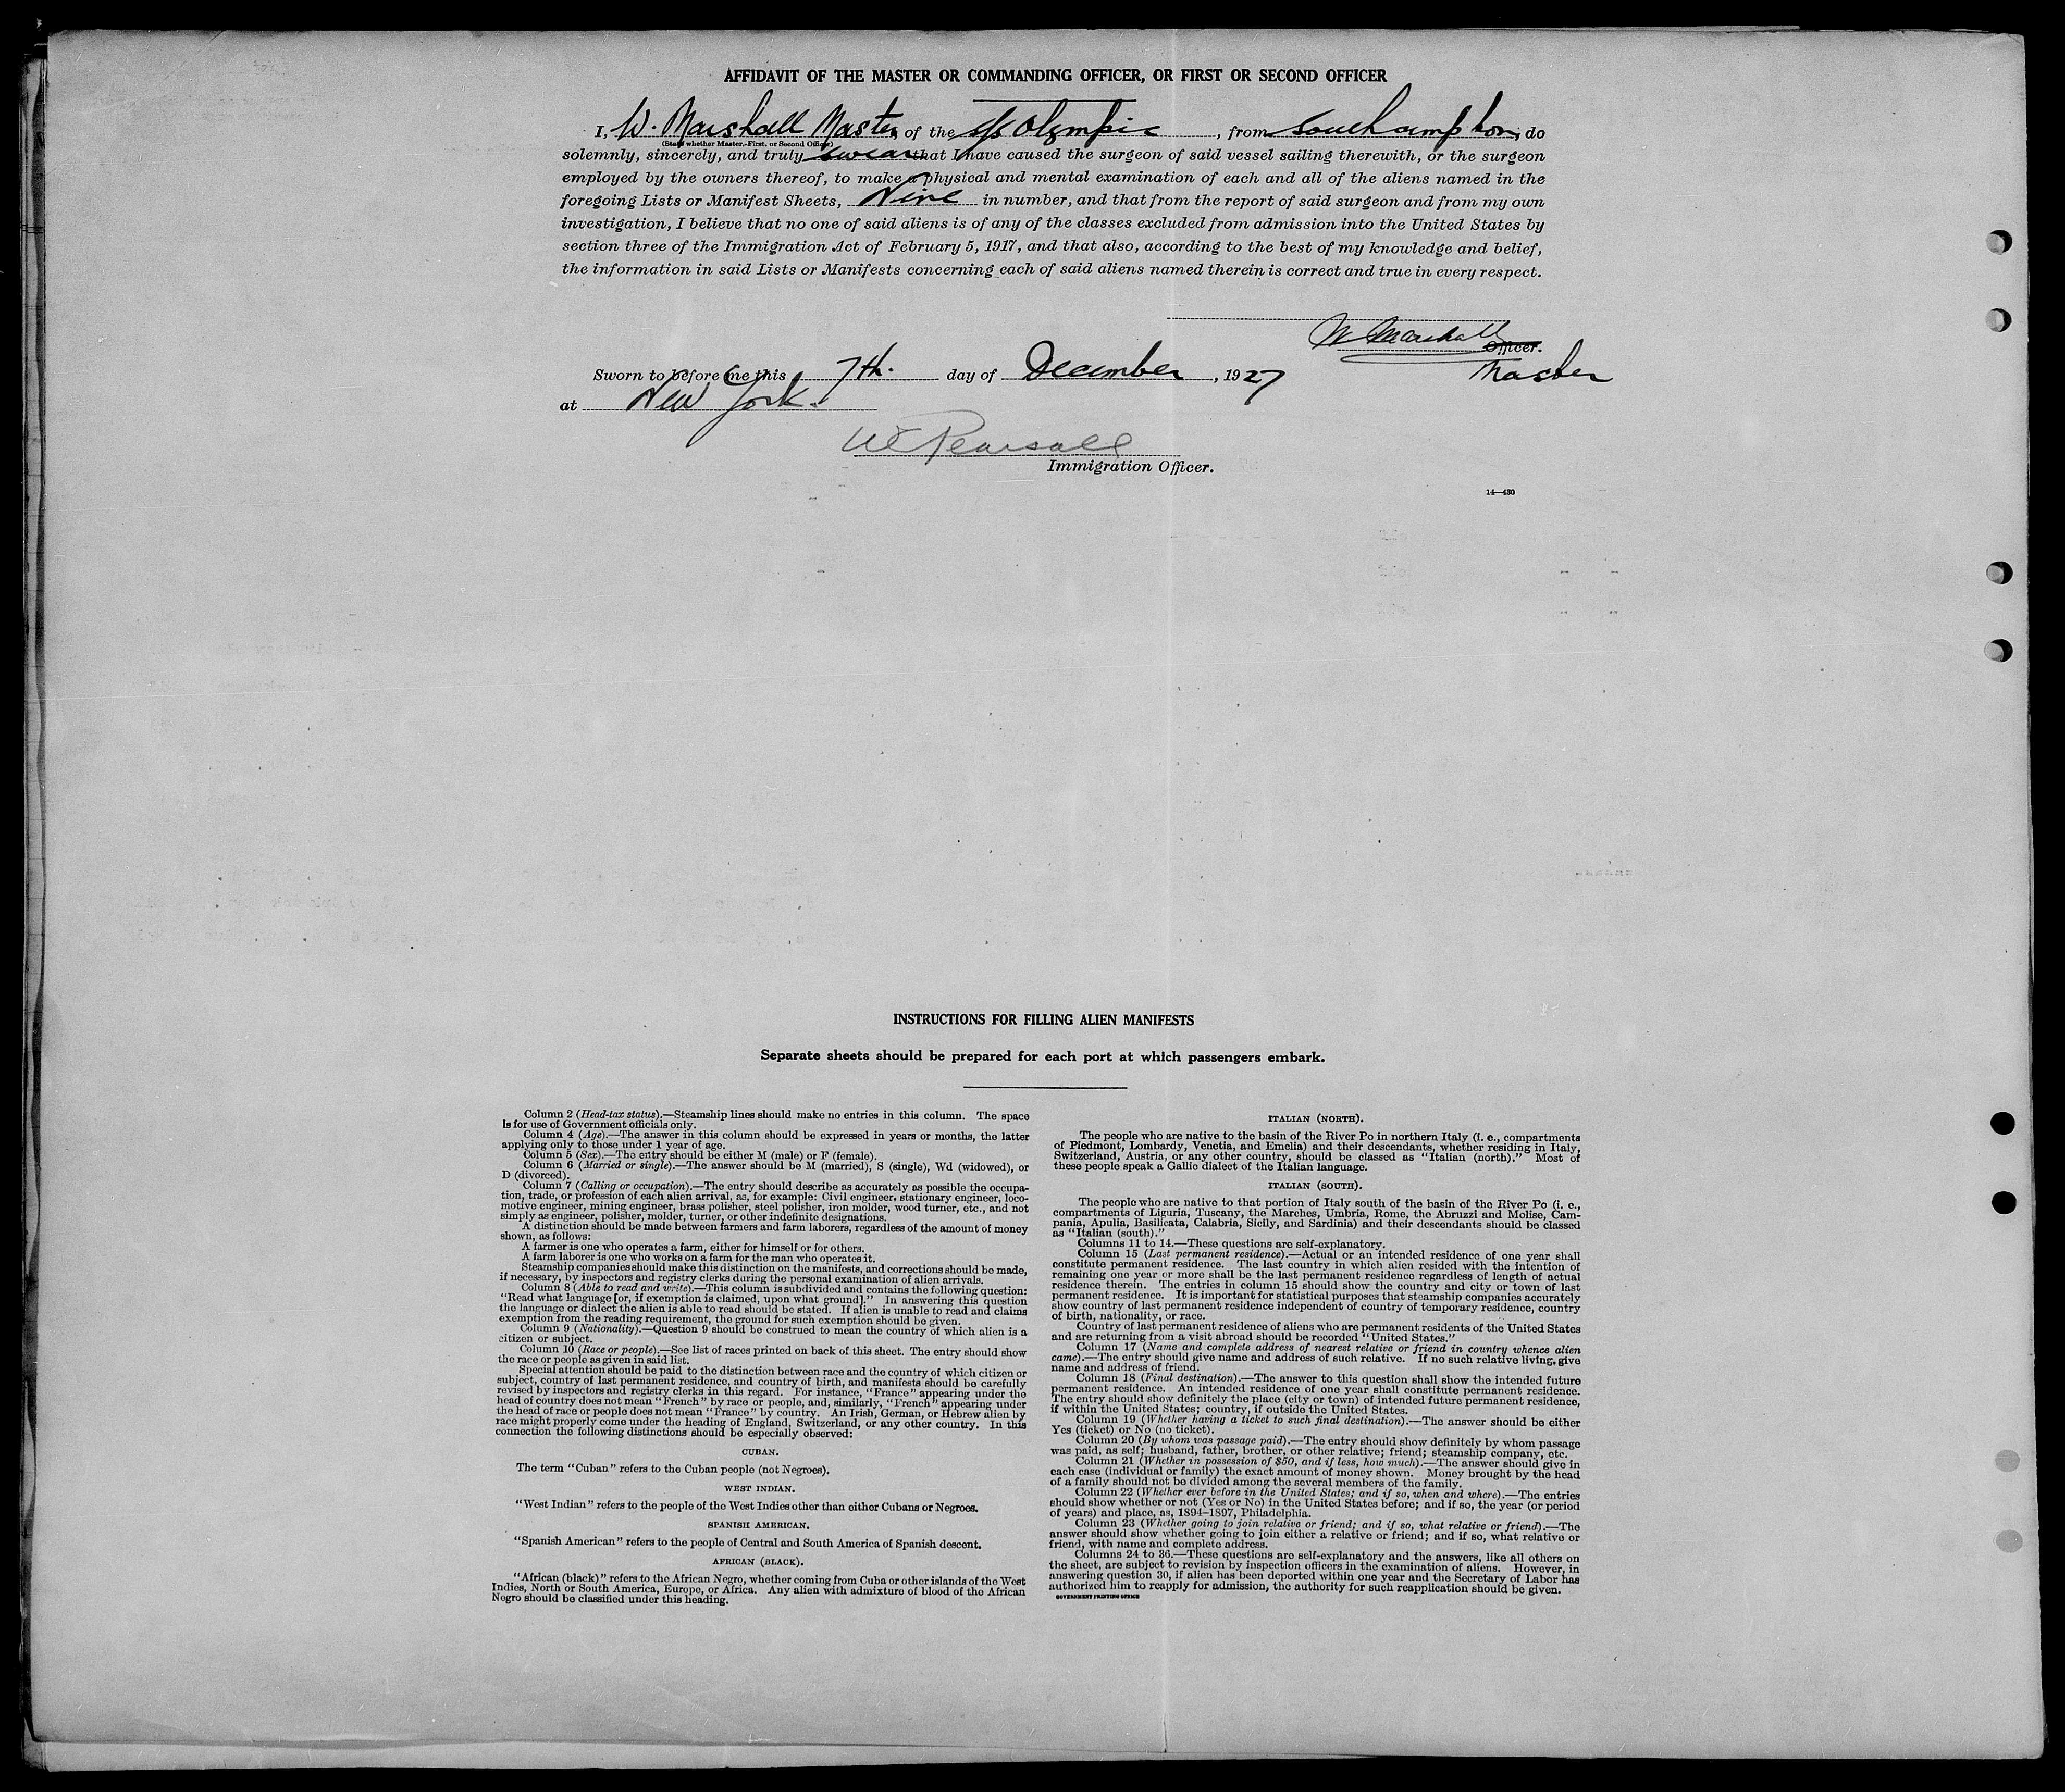 AFFIDAVIT OF THE MASTER OR COMMANDING OFFICER, OR FIRST OR SECOND OFFICER
I, W. Marshall Master, of the s/s Olympic, from Southampton, do
(State whether Master, First, or Second Officer)
solemnly, sincerely, and truly swear that I have caused the surgeon of said vessel sailing therewith, or the surgeon
employed by the owners thereof, to make a physical and mental examination of each and all of the aliens named in the
foregoing Lists or Manifest Sheets, Nine in number, and that from the report of said surgeon and from my own
investigation, I believe that no one of said aliens is of any of the classes excluded from admission into the United States by
section three of the Immigration Act of February 5, 1917, and that also, according to the best of my knowledge and belief,
the information in said Lists or Manifests concerning each of said aliens named therein is correct and true in every respect.
W Marshall
Officer.
Master
Sworn to before me this 7th. day of December, 1927
at New York.
W Pearsall
Immigration Officer.
14—430
INSTRUCTIONS FOR FILLING ALIEN MANIFESTS
Separate sheets should be prepared for each port at which passengers embark.
Column 2 (Head-tax status).—Steamship lines should make no entries in this column. The space
is for use of Government officials only.
Column 4 (Age).—The answer in this column should be expressed in years or months, the latter
applying only to those under 1 year of age.
Column 5 (Sex).—The entry should be either M (male) or F (female).
Column 6 (Married or single).—The answer should be M (married), S (single), Wd (widowed), or
D (divorced).
Column 7 (Calling or occupation).—The entry should describe as accurately as possible the occupa-
tion, trade, or profession of each alien arrival, as, for example: Civil engineer, stationary engineer, loco-
motive engineer, mining engineer, brass polisher, steel polisher, iron molder, wood turner, etc., and not
simply as engineer, polisher, molder, turner, or other indefinite designations.
A distinction should be made between farmers and farm laborers, regardless of the amount of money
shown, as follows:
A farmer is one who operates a farm, either for himself or for others.
A farm laborer is one who works on a farm for the man who operates it.
Steamship companies should make this distinction on the manifests, and corrections should be made,
if necessary, by inspectors and registry clerks during the personal examination of alien arrivals.
Column 8 (Able to read and write).—This column is subdivided and contains the following question:
"Read what language [or, if exemption is claimed, upon what ground]." In answering this question
the language or dialect the alien is able to read should be stated. If alien is unable to read and claims
exemption from the reading requirement, the ground for such exemption should be given.
Column 9 (Nationality).—Question 9 should be construed to mean the country of which alien is a
citizen or subject.
Column 10 (Race or people).—See list of races printed on back of this sheet. The entry should show
the race or people as given in said list.
Special attention should be paid to the distinction between race and the country of which citizen or
subject, country of last permanent residence, and country of birth, and manifests should be carefully
revised by inspectors and registry clerks in this regard. For instance, "France" appearing under the
head of country does not mean "French" by race or people, and, similarly, "French" appearing under
the head of race or people does not mean "France" by country. An Irish, German, or Hebrew alien by
race might properly come under the heading of England, Switzerland, or any other country. In this
connection the following distinctions should be especially observed:
CUBAN.
The term "Cuban" refers to the Cuban people (not Negroes).
WEST INDIAN.
"West Indian" refers to the people of the West Indies other than either Cubans or Negroes.
SPANISH AMERICAN.
"Spanish American" refers to the people of Central and South America of Spanish descent.
AFRICAN (BLACK).
"African (black)" refers to the African Negro, whether coming from Cuba or other islands of the West
Indies, North or South America, Europe, or Africa. Any alien with admixture of blood of the African
Negro should be classified under this heading.
ITALIAN (NORTH).
The people who are native to the basin of the River Po in northern Italy (i. e., compartments
of Piedmont, Lombardy, Venetia, and Emelia) and their descendants, whether residing in Italy,
Switzerland, Austria, or any other country, should be classed as "Italian (north)." Most of
these people speak a Gallic dialect of the Italian language.
ITALIAN (SOUTH).
The people who are native to that portion of Italy south of the basin of the River Po (i. e.,
compartments of Liguria, Tuscany, the Marches, Umbria, Rome, the Abruzzi and Molise, Cam-
pania, Apulia, Basilicata, Calabria, Sicily, and Sardinia) and their descendants should be classed
as "Italian (south)."
Columns 11 to 14.—These questions are self-explanatory.
Column 15 (Last permanent residence).—Actual or an intended residence of one year shall
constitute permanent residence. The last country in which alien resided with the intention of
remaining one year or more shall be the last permanent residence regardless of length of actual
residence therein. The entries in column 15 should show the country and city or town of last
permanent residence. It is important for statistical purposes that steamship companies accurately
show country of last permanent residence independent of country of temporary residence, country
of birth, nationality, or race.
Country of last permanent residence of aliens who are permanent residents of the United States
and are returning from a visit abroad should be recorded "United States."
Column 17 (Name and complete address of nearest relative or friend in country whence alien
came).—The entry should give name and address of such relative. If no such relative living, give
name and address of friend.
Column 18 (Final destination).—The answer to this question shall show the intended future
permanent residence. An intended residence of one year shall constitute permanent residence.
The entry should show definitely the place (city or town) of intended future permanent residence,
if within the United States; country, if outside the United States.
Column 19 (Whether having a ticket to such final destination).—The answer should be either
Yes (ticket) or No (no ticket).
Column 20 (By whom was passage paid).—The entry should show definitely by whom passage
was paid, as self; husband, father, brother, or other relative; friend; steamship company, etc.
Column 21 (Whether in possession of $50, and if less, how much).—The answer should give in
each case (individual or family) the exact amount of money shown. Money brought by the head
of a family should not be divided among the several members of the family.
Column 22 (Whether ever before in the United States; and if so, when and where).—The entries
should show whether or not (Yes or No) in the United States before; and if so, the year (or period
of years) and place, as, 1894–1897, Philadelphia.
Column 23 (Whether going to join relative or friend; and if so, what relative or friend).—The
answer should show whether going to join either a relative or friend; and if so, what relative or
friend, with name and complete address.
Columns 24 to 36.—These questions are self-explanatory and the answers, like all others on
the sheet, are subject to revision by inspection officers in the examination of aliens. However, in
answering question 30, if alien has been deported within one year and the Secretary of Labor has
authorized him to reapply for admission, the authority for such reapplication should be given.
GOVERNMENT PRINTING OFFICE